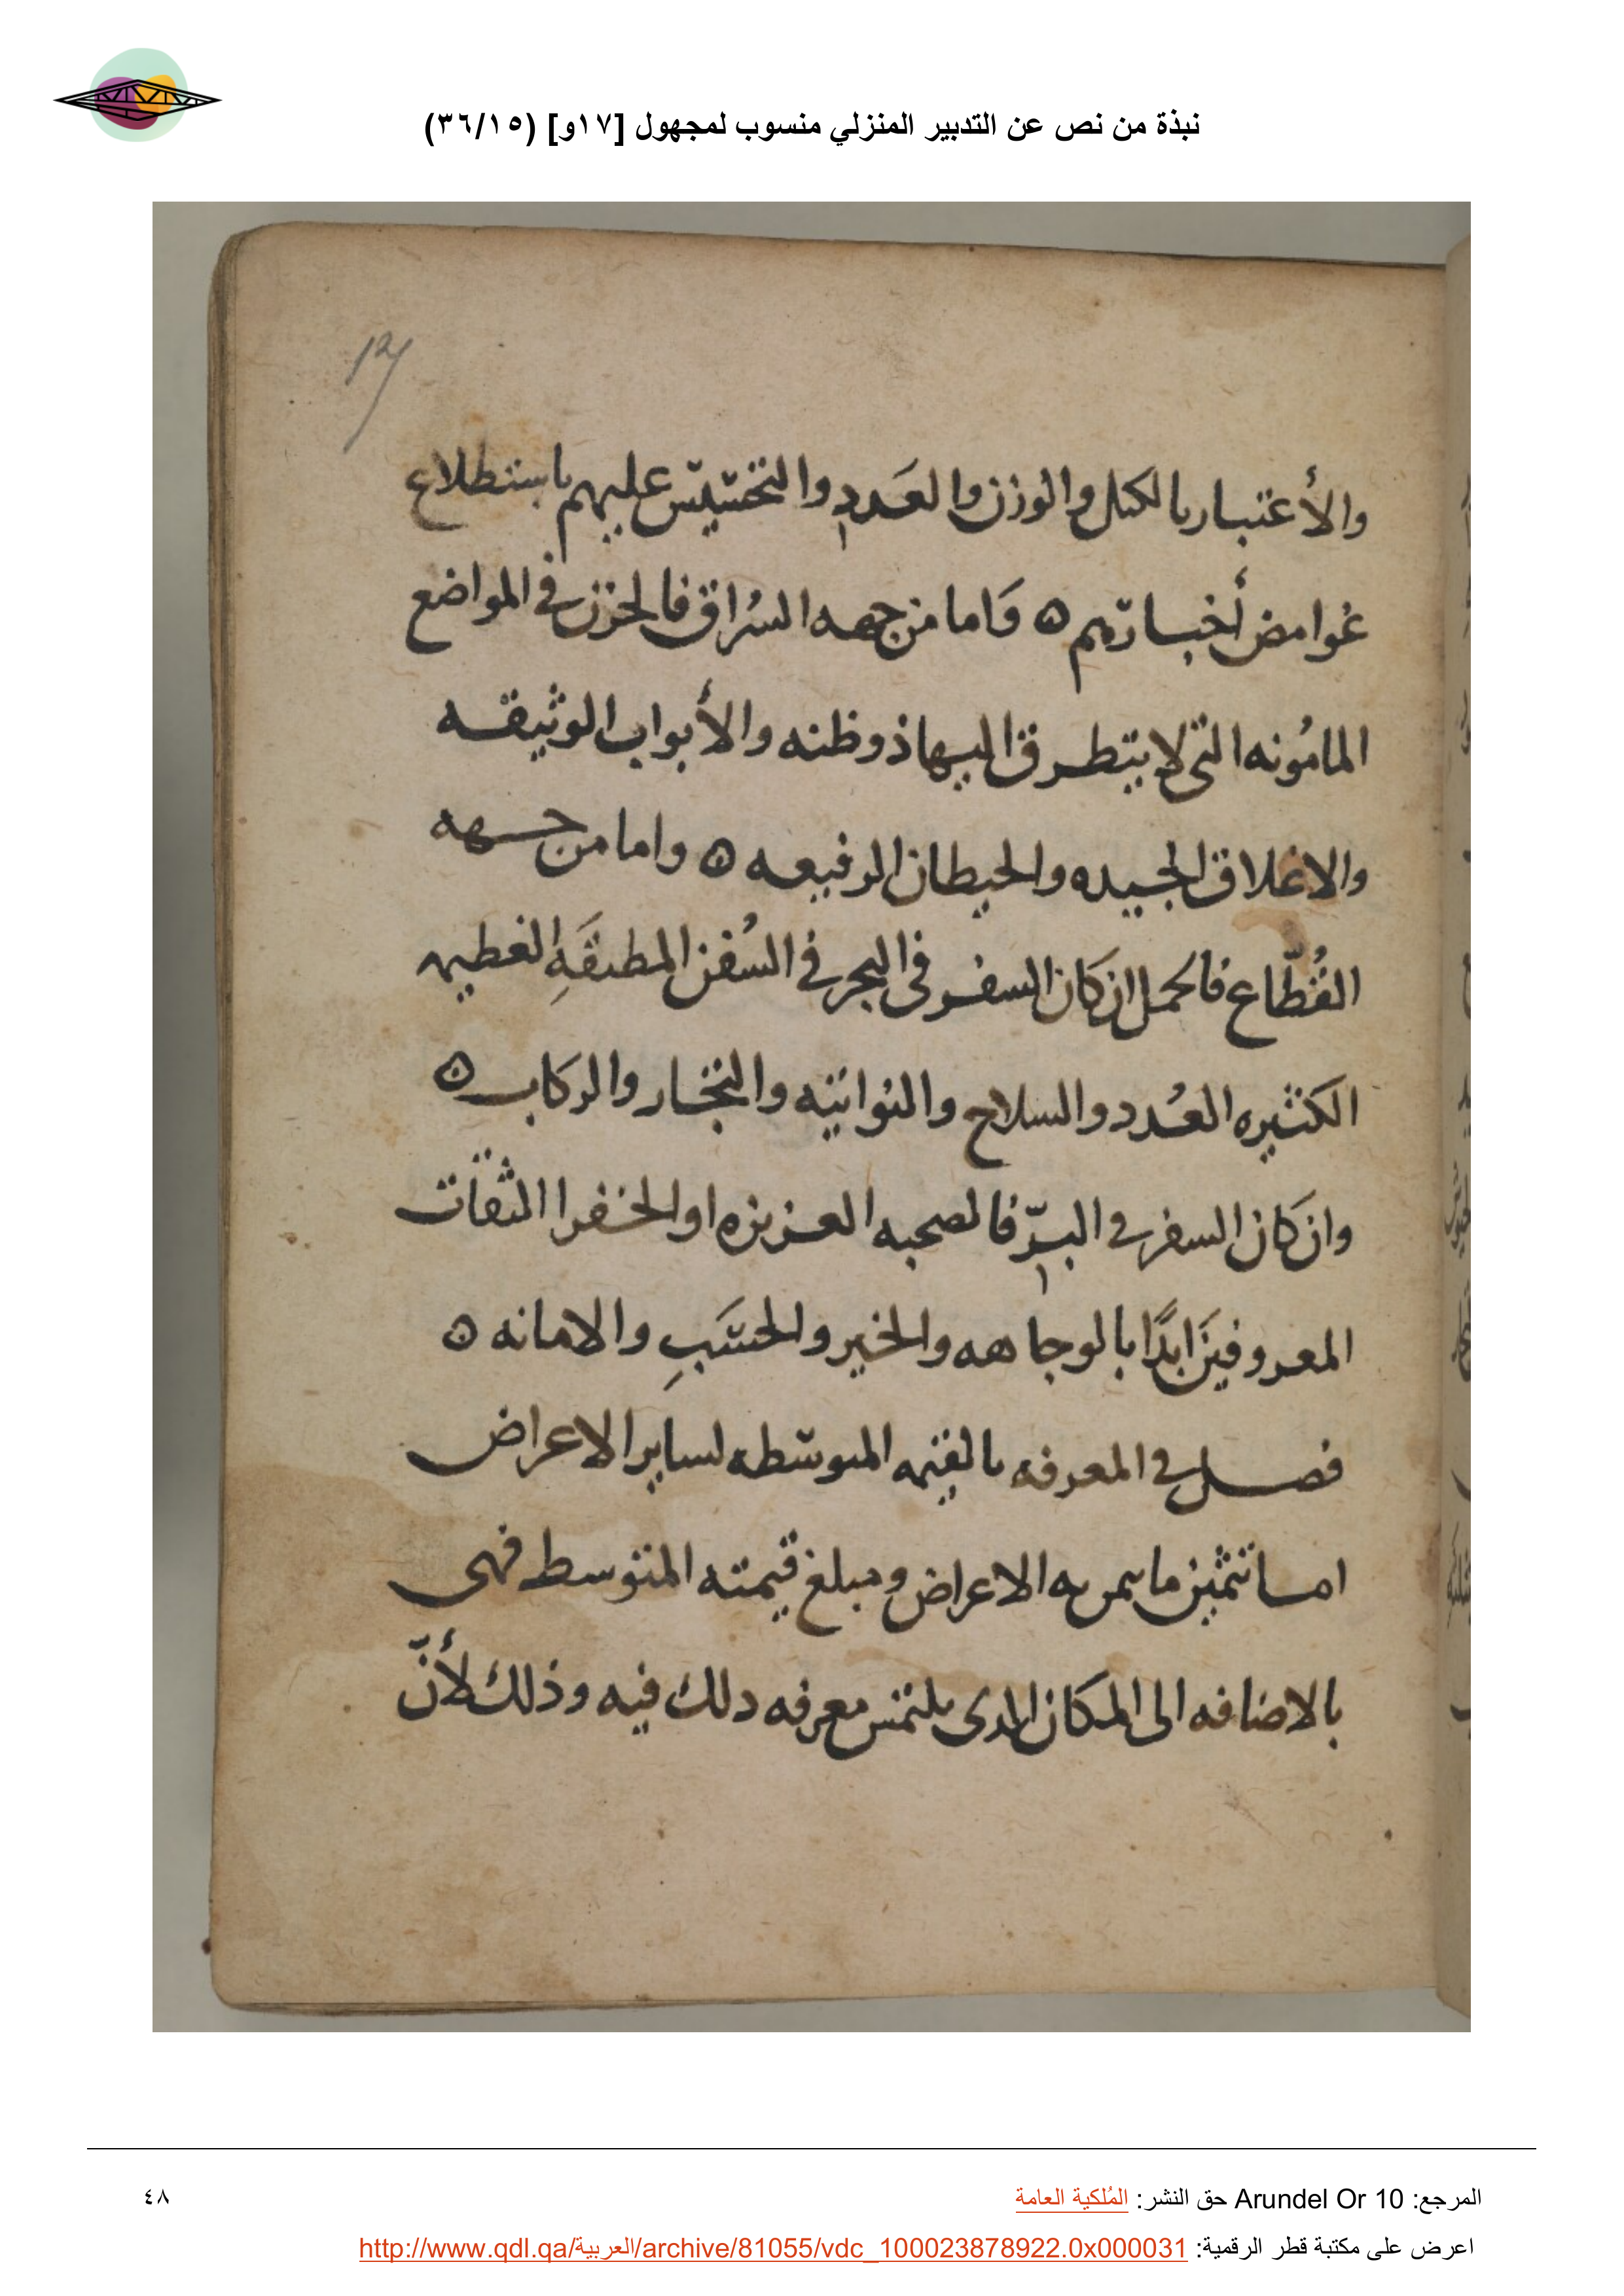 نبذة من نص عن التدبير المنزلي منسوب لمجهول [١٧و] (٣٦/١٥)
17
والأعتبار بالكيل والوزن والعَدد والتخسّيسّ عليهم باستطلاع
غوامض أخبارهم ۞ وَاما من جهه السُراق فالحرز في المواضع
المامُونه التي لا يتطرق اليها ذو ظنه والأبواب الوثيقه
والاغلاق الجيده والحيطان الرفيعه ۞ واما من جهه
القُطّاع فالحمل ان كان السفر في البحر في السُفن المطبقَهِ العظيمه
الكثيره العُدد والسلاح والنواتيه والتجار والركاب ۞
وان كان السفر في البرّ فالصحبه العزيزه او الخفرا الثقات
المعروفينَ ابدًا بالوجاهه والخير والحسَبِ والامانه ۞
فصل في المعرفه بالقيمه المتوسّطه لساير الاعراض
اما تثمين ما يمر به الاعراض ومبلغ قيمته المتوسط فهى
بالاضافه الى المكان الدى يلتمس معرفه دلك فيه وذلك لأنّ
المرجع: Arundel Or 10 حق النشر: المُلكية العامة
٤٨
اعرض على مكتبة قطر الرقمية: http://www.qdl.qa/العربية/archive/81055/vdc_100023878922.0x000031